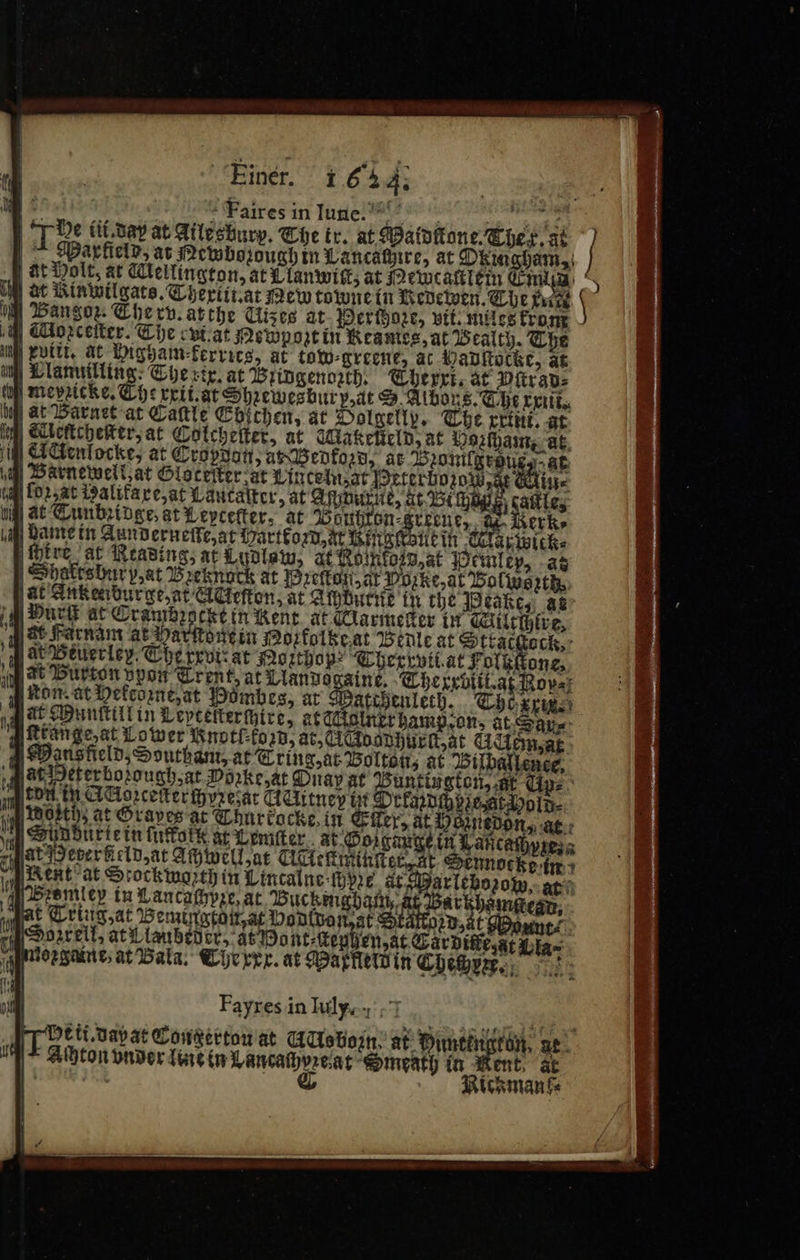 Einer. 1644.
Faires in Iune.
THe iii. day at Ailesbury. The ix. at Maidstone. The x. at
Maxfield, at Newborough in Lancashire, at Okingham,
at Holt, at Wellington, at Llanwist, at Newcastle in Emlin
at Kinwilgate. The xiii. at New towne in Kedewen. The
Bangor. The xv. at the Uizes at Pershore, vii. miles from
Worcester. The xvi. at Newport in Keames, at Bealth. The
xviii. at Higham-ferries, at tow-greene, at Hadstocke, at
Llanvilling. The xix. at Bridgenorth. The xxi. at Ystrad-
meyricke. The xxii. at Shrewesbury, at S. Albons. The xxiii.
at Barnet at Castle Ebichen, at Dolgelly. The xxiiii. at
Westchester, at Colchester, at Wakefield, at Horsham, at
Wenlocke, at Croydon, at Bedford, at Bromsgroue, at
Barnewell, at Glocester, at Lincoln, at Peterborow, at Win-
sor, at Halifaxe, at Lancaster, at Ashburne, at castles
at Tunbridge, at Leycester, at Boughton-greene, at Kerk-
hame in Aundernesse, at Hartford, at Kingstone in Warwick-
shire at Reading, at Ludlow, at Romford, at Pemley, at
Shaftsbury, at Brecknock at Preston, at Yorke, at Bolworth,
at Ankenburge, at Weston, at Ashburne in the Peake, at
Hurst at Crambrocke in Kent at Warmester in Wiltshire,
at Farnam at Harstone in Norfolke at Benle at Strattock,
at Beuerley. The xxvi. at Northop. The xxvii. at Folkstone,
at Burton vpon Trent, at Llandogaine. The xxviii. at Roys-
ston. at Hescorne, at Pombes, at Matchenleth. The xxix.
at Munstill in Leycestershire, at Wolnerhampton, at
strange, at Lower Knotsford, at, Woodhurst, at Wem, at
Mansfield, Southam, at Tring, at Bolton, at Bilballence,
at Peterborough, at Yorke, at Onay at Buntington, at Up-
ton in Worcestershyre, at Witney in Oxfordshyre, at Hold-
worth, at Graues at Thurrocke, in Essex, at Horndon, at
Sundburie in suffolk at Lemster. at Gorgange in Lancashyre,
at Peverfield, at Ashwell, at Westminster, at Sennocke in
Kent at Stockworth in Lincalne-shyre at Marleborow. at
Bremley in Lancashyre, at Buckingham, at Barkhamstead,
at Tring, at Bemington, at Hodsdon, at Stafford, at Mount-
Sorrell, at Llanbeder, at Pont-stephen, at Cardiffe, at Lla-
morgaine, at Bala. The xxx. at Maxfield in Cheshyre.
Fayres in Iuly.
THe ii. day at Congerton at Woborn. at Huntington, at
Ashton vnder line in Lancashyre. at Smeath in Kent, at
C Rickmans-